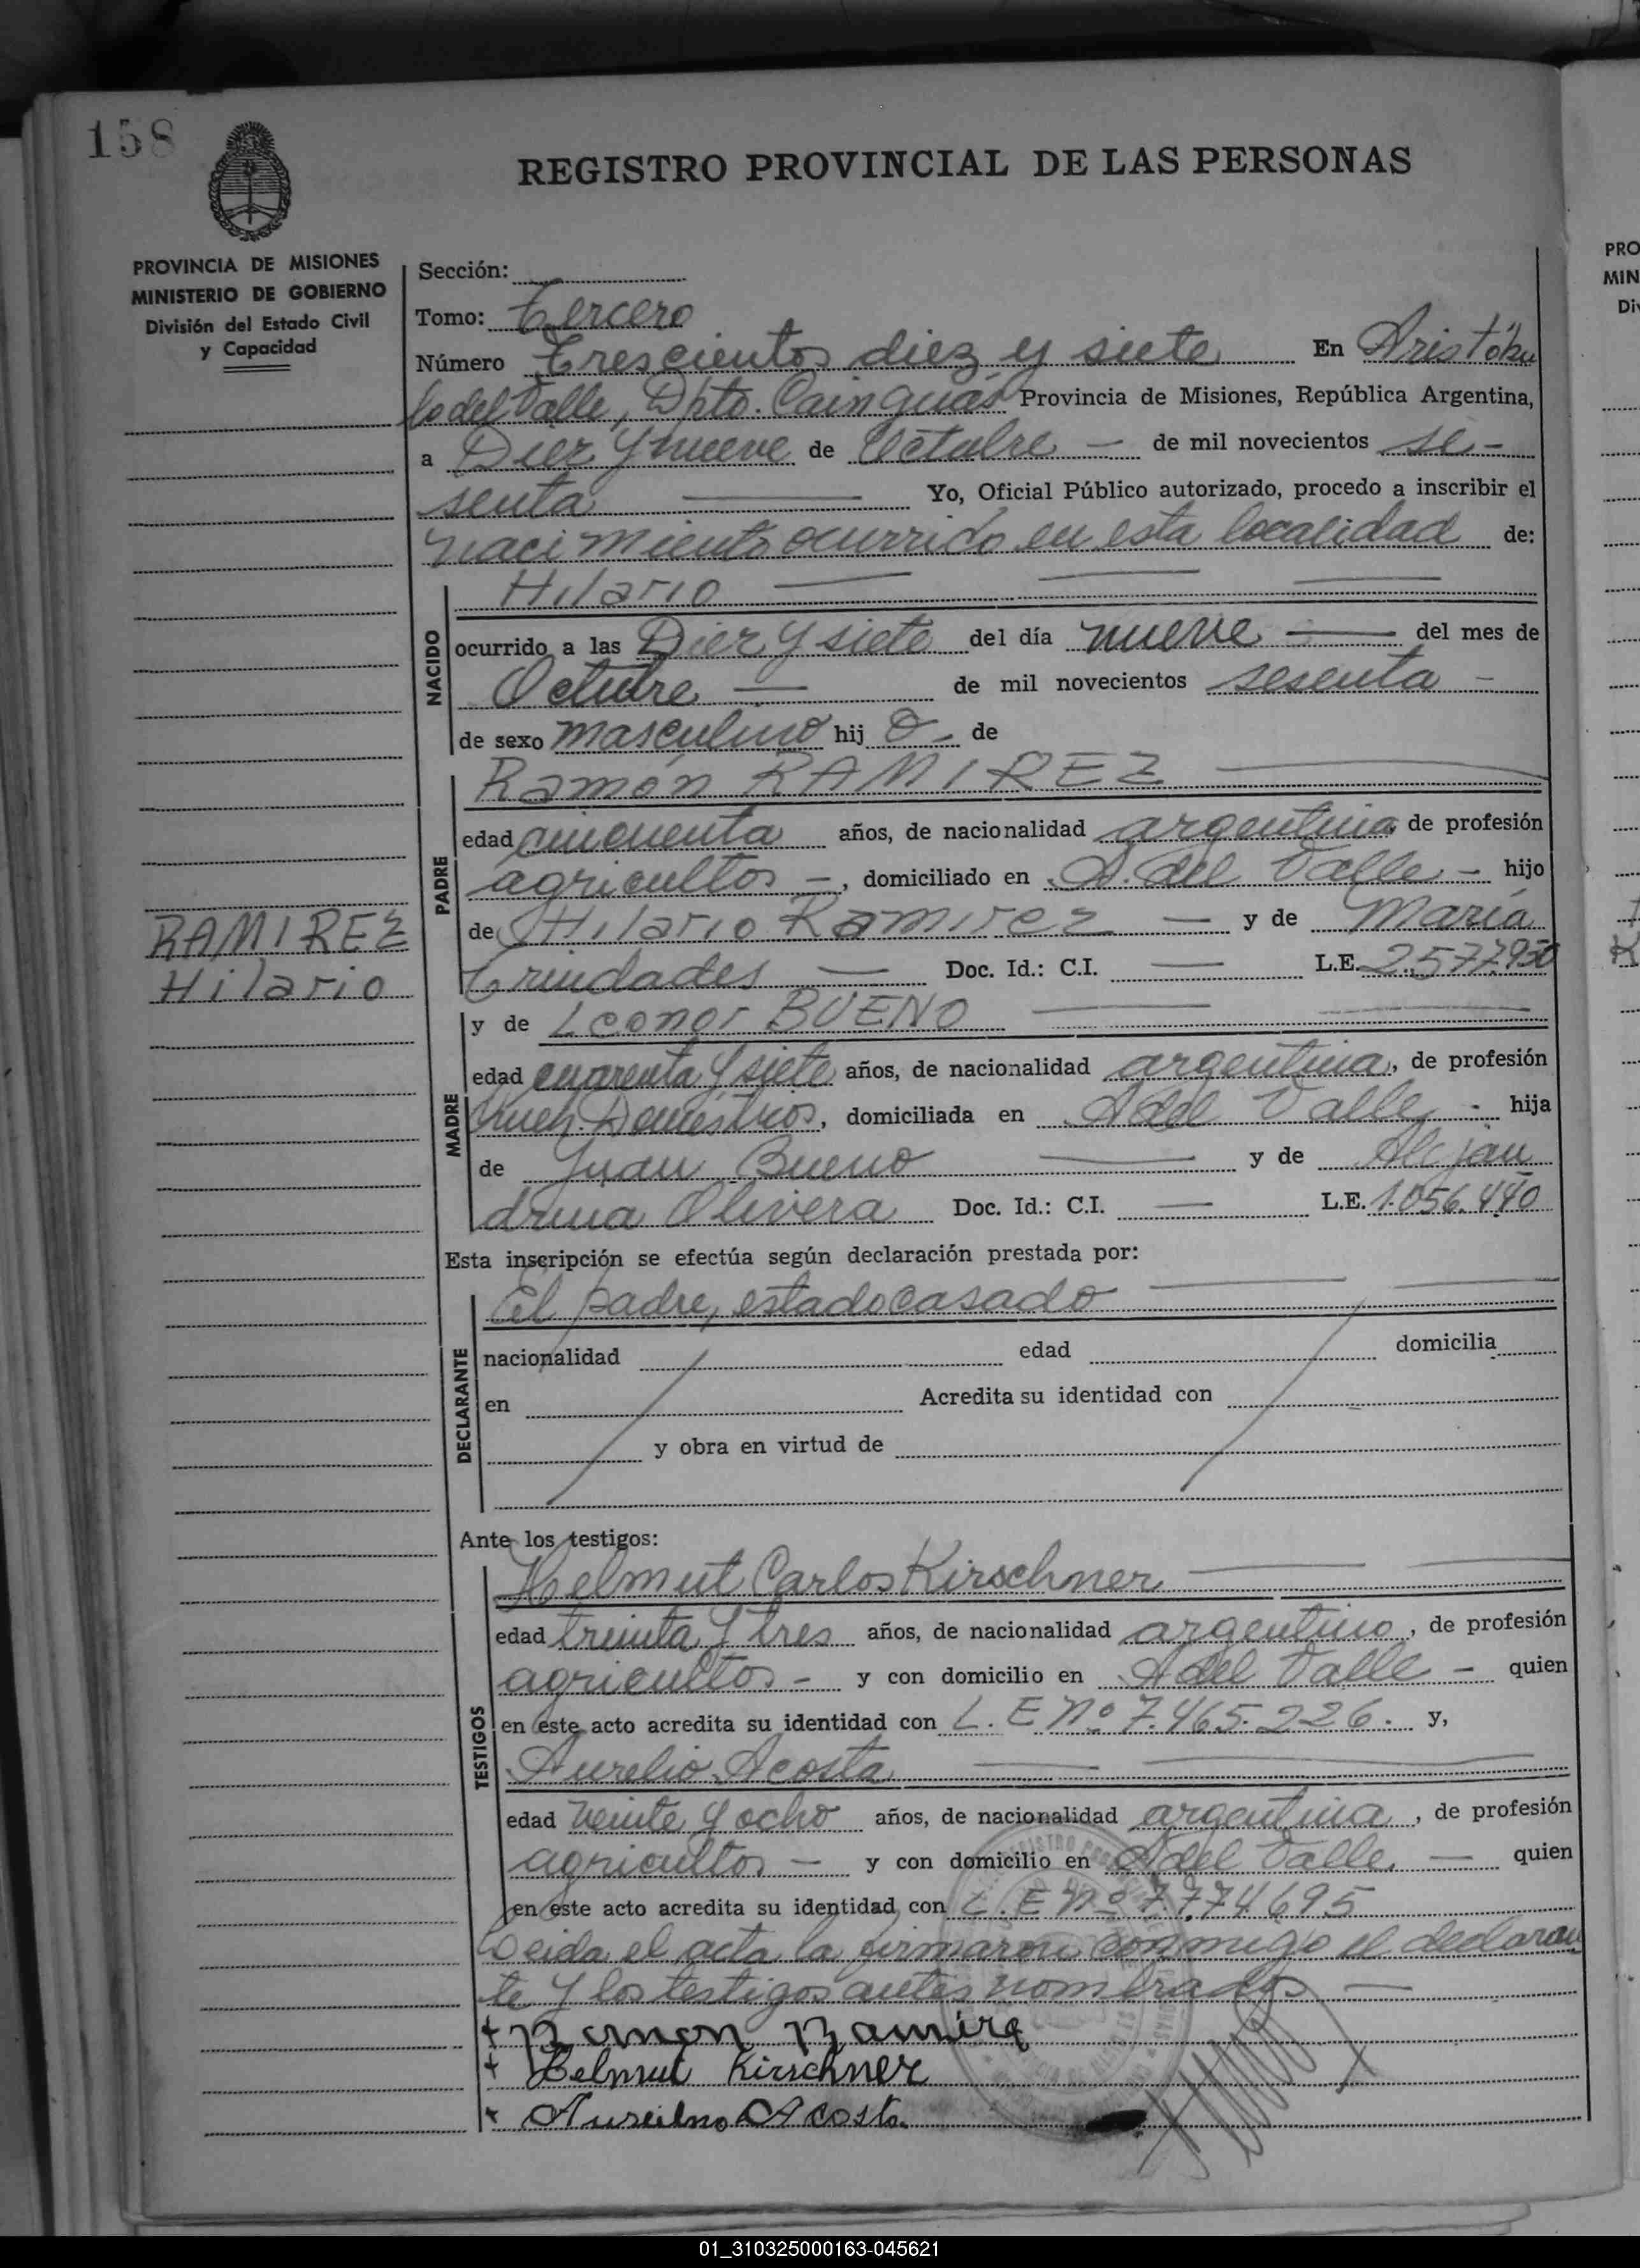 158
REGISTRO PROVINCIAL DE LAS PERSONAS
PROVINCIA DE MISIONES
MINISTERIO DE GOBIERNO
División del Estado Civil
y Capacidad
Sección:
Tomo: Tercero
Número Trescientos diez y siete En Aristóbu
lo del Valle, Dpto. Cainguás Provincia de Misiones, República Argentina,
a Diez y nueve de Octubre — de mil novecientos se-
senta — Yo, Oficial Público autorizado, procedo a inscribir el
nacimiento ocurrido en esta localidad de:
NACIDO
Hilario — — —
ocurrido a las Diez y siete del día nueve — del mes de
Octubre — de mil novecientos sesenta -
de sexo masculino hij o - de
PADRE
Ramón RAMIREZ —
edad cincuenta años, de nacionalidad argentina de profesión
agricultor -, domiciliado en A. del Valle - hijo
de Hilario Ramirez — y de María
Trindades — Doc. Id.: C.I. — L.E. 2.577.950
RAMIREZ
Hilario
MADRE
y de Leonor BUENO — —
edad cuarenta y siete años, de nacionalidad argentina, de profesión
Domésticos, domiciliada en A del Valle - hija
de Juan Bueno — y de Alejan
drina Olivera Doc. Id.: C.I. — L.E. 1.056.440
Esta inscripción se efectúa según declaración prestada por:
DECLARANTE
El padre, estado casado — —
nacionalidad edad domicilia
en Acredita su identidad con
y obra en virtud de
Ante los testigos:
TESTIGOS
Helmut Carlos Kirschner — —
edad treinta y tres años, de nacionalidad argentino, de profesión
agricultor - y con domicilio en A del Valle - quien
en este acto acredita su identidad con L. E Nº 7.465.226. y,
Aurelio Acosta — —
edad veinte y ocho años, de nacionalidad argentina, de profesión
agricultor — y con domicilio en A del Valle, — quien
en este acto acredita su identidad con L. E Nº 7.774.695
Leida el acta la firmaron conmigo el declaran
te y los testigos antes nombrados —
+ Ramon Ramire
+ Helmut Kirschner
+ Acosta.
PRO
MIN
01_310325000163-045621